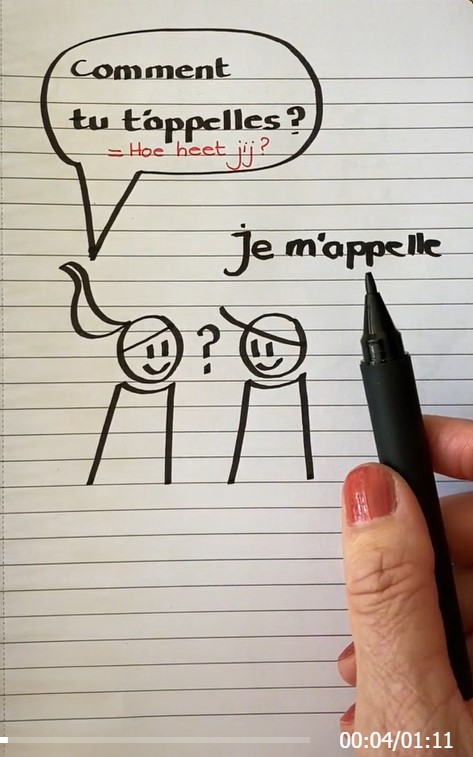 Comment
tu t'appelles?
= Hoe heet jij?
je m'appelle
?
00:04/01:11